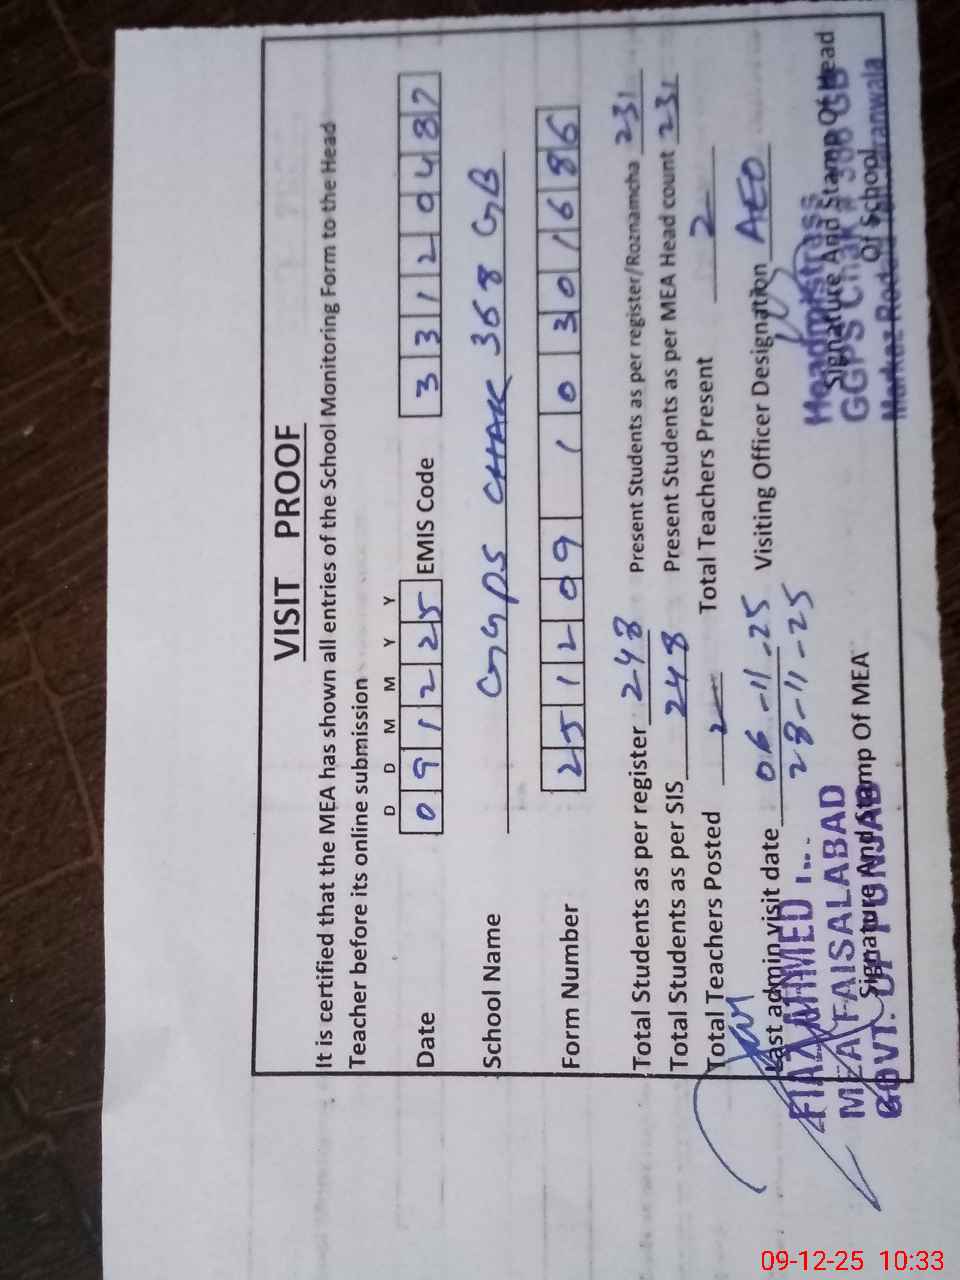 VISIT PROOF
It is certified that the MEA has shown all entries of the School Monitoring Form to the Head
Teacher before its online submission
D D M M Y Y
Date 0 9 1 2 2 5 EMIS Code 3 3 1 2 9 4 8 7
School Name GGPS CHAK 368 GB
Form Number 2 5 1 2 0 9 1 0 3 0 1 6 8 6
Total Students as per register 248 Present Students as per register/Roznamcha 231
Total Students as per SIS 248 Present Students as per MEA Head count 231
Total Teachers Posted 2 Total Teachers Present 2
Last admin visit date 06-11-25 Visiting Officer Designation AEO
28-11-25
AHMED
MEA FAISALABAD
GOVT. OF PUNJAB
Signature And Stamp Of MEA
Headmistress
GGPS Chak # 368 GB
Markaz
Signature And Stamp Of Head
Of School
09-12-25 10:33